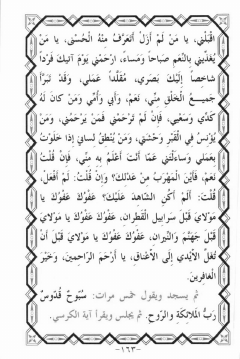 اقْبَلْنِي، يا مَنْ لَمْ أَزَلْ أَتَعَرَّفُ مِنْهُ الْحُسْنى، يا مَنْ
يُغَذِّيني بِالنِّعَمِ صَباحاً وَمَساءً، ارْحَمْني يَوْمَ آتيكَ فَرْداً
شاخِصاً إِلَيْكَ بَصَري، مُقَلَّداً عَمَلي، وَقَدْ تَبَرَّأَ
جَميعُ الْخَلْقِ مِنِّي، نَعَمْ، وَأَبي وَأُمِّي وَمَنْ كانَ لَهُ
كَدِّي وَسَعْيي، فَإِنْ لَمْ تَرْحَمْني فَمَنْ يَرْحَمُني، وَمَنْ
يُؤْنِسُ فِي الْقَبْرِ وَحْشَتي، وَمَنْ يُنْطِقُ لِساني إِذا خَلَوْتُ
بِعَمَلي وَسَاءَلْتَني عَمّا أَنْتَ أَعْلَمُ بِهِ مِنِّي، فَإِنْ قُلْتُ
نَعَمْ، فَأَيْنَ الْمَهْرَبُ مِنْ عَدْلِكَ؟ وَإِنْ قُلْتُ: لَمْ أَفْعَلْ،
قُلْتَ: أَلَمْ أَكُنِ الشّاهِدَ عَلَيْكَ؟ عَفْوُكَ عَفْوُكَ يا
مَوْلايَ قَبْلَ سَرابيلِ الْقَطِرانِ، عَفْوُكَ عَفْوُكَ يا مَوْلايَ
قَبْلَ جَهَنَّمَ وَالنّيرانِ، عَفْوُكَ عَفْوُكَ يا مَوْلايَ قَبْلَ أَنْ
تُغَلَّ الْأَيْدي إِلَى الْأَعْناقِ، يا أَرْحَمَ الرّاحِمينَ، وَخَيْرَ
الْغافِرينَ.
ثم يسجد ويقول خمس مرات: سُبّوحٌ قُدّوسٌ
رَبُّ الْمَلائِكَةِ وَالرّوحِ. ثم يجلس ويقرأ آية الكرسي.
-١٦٣-